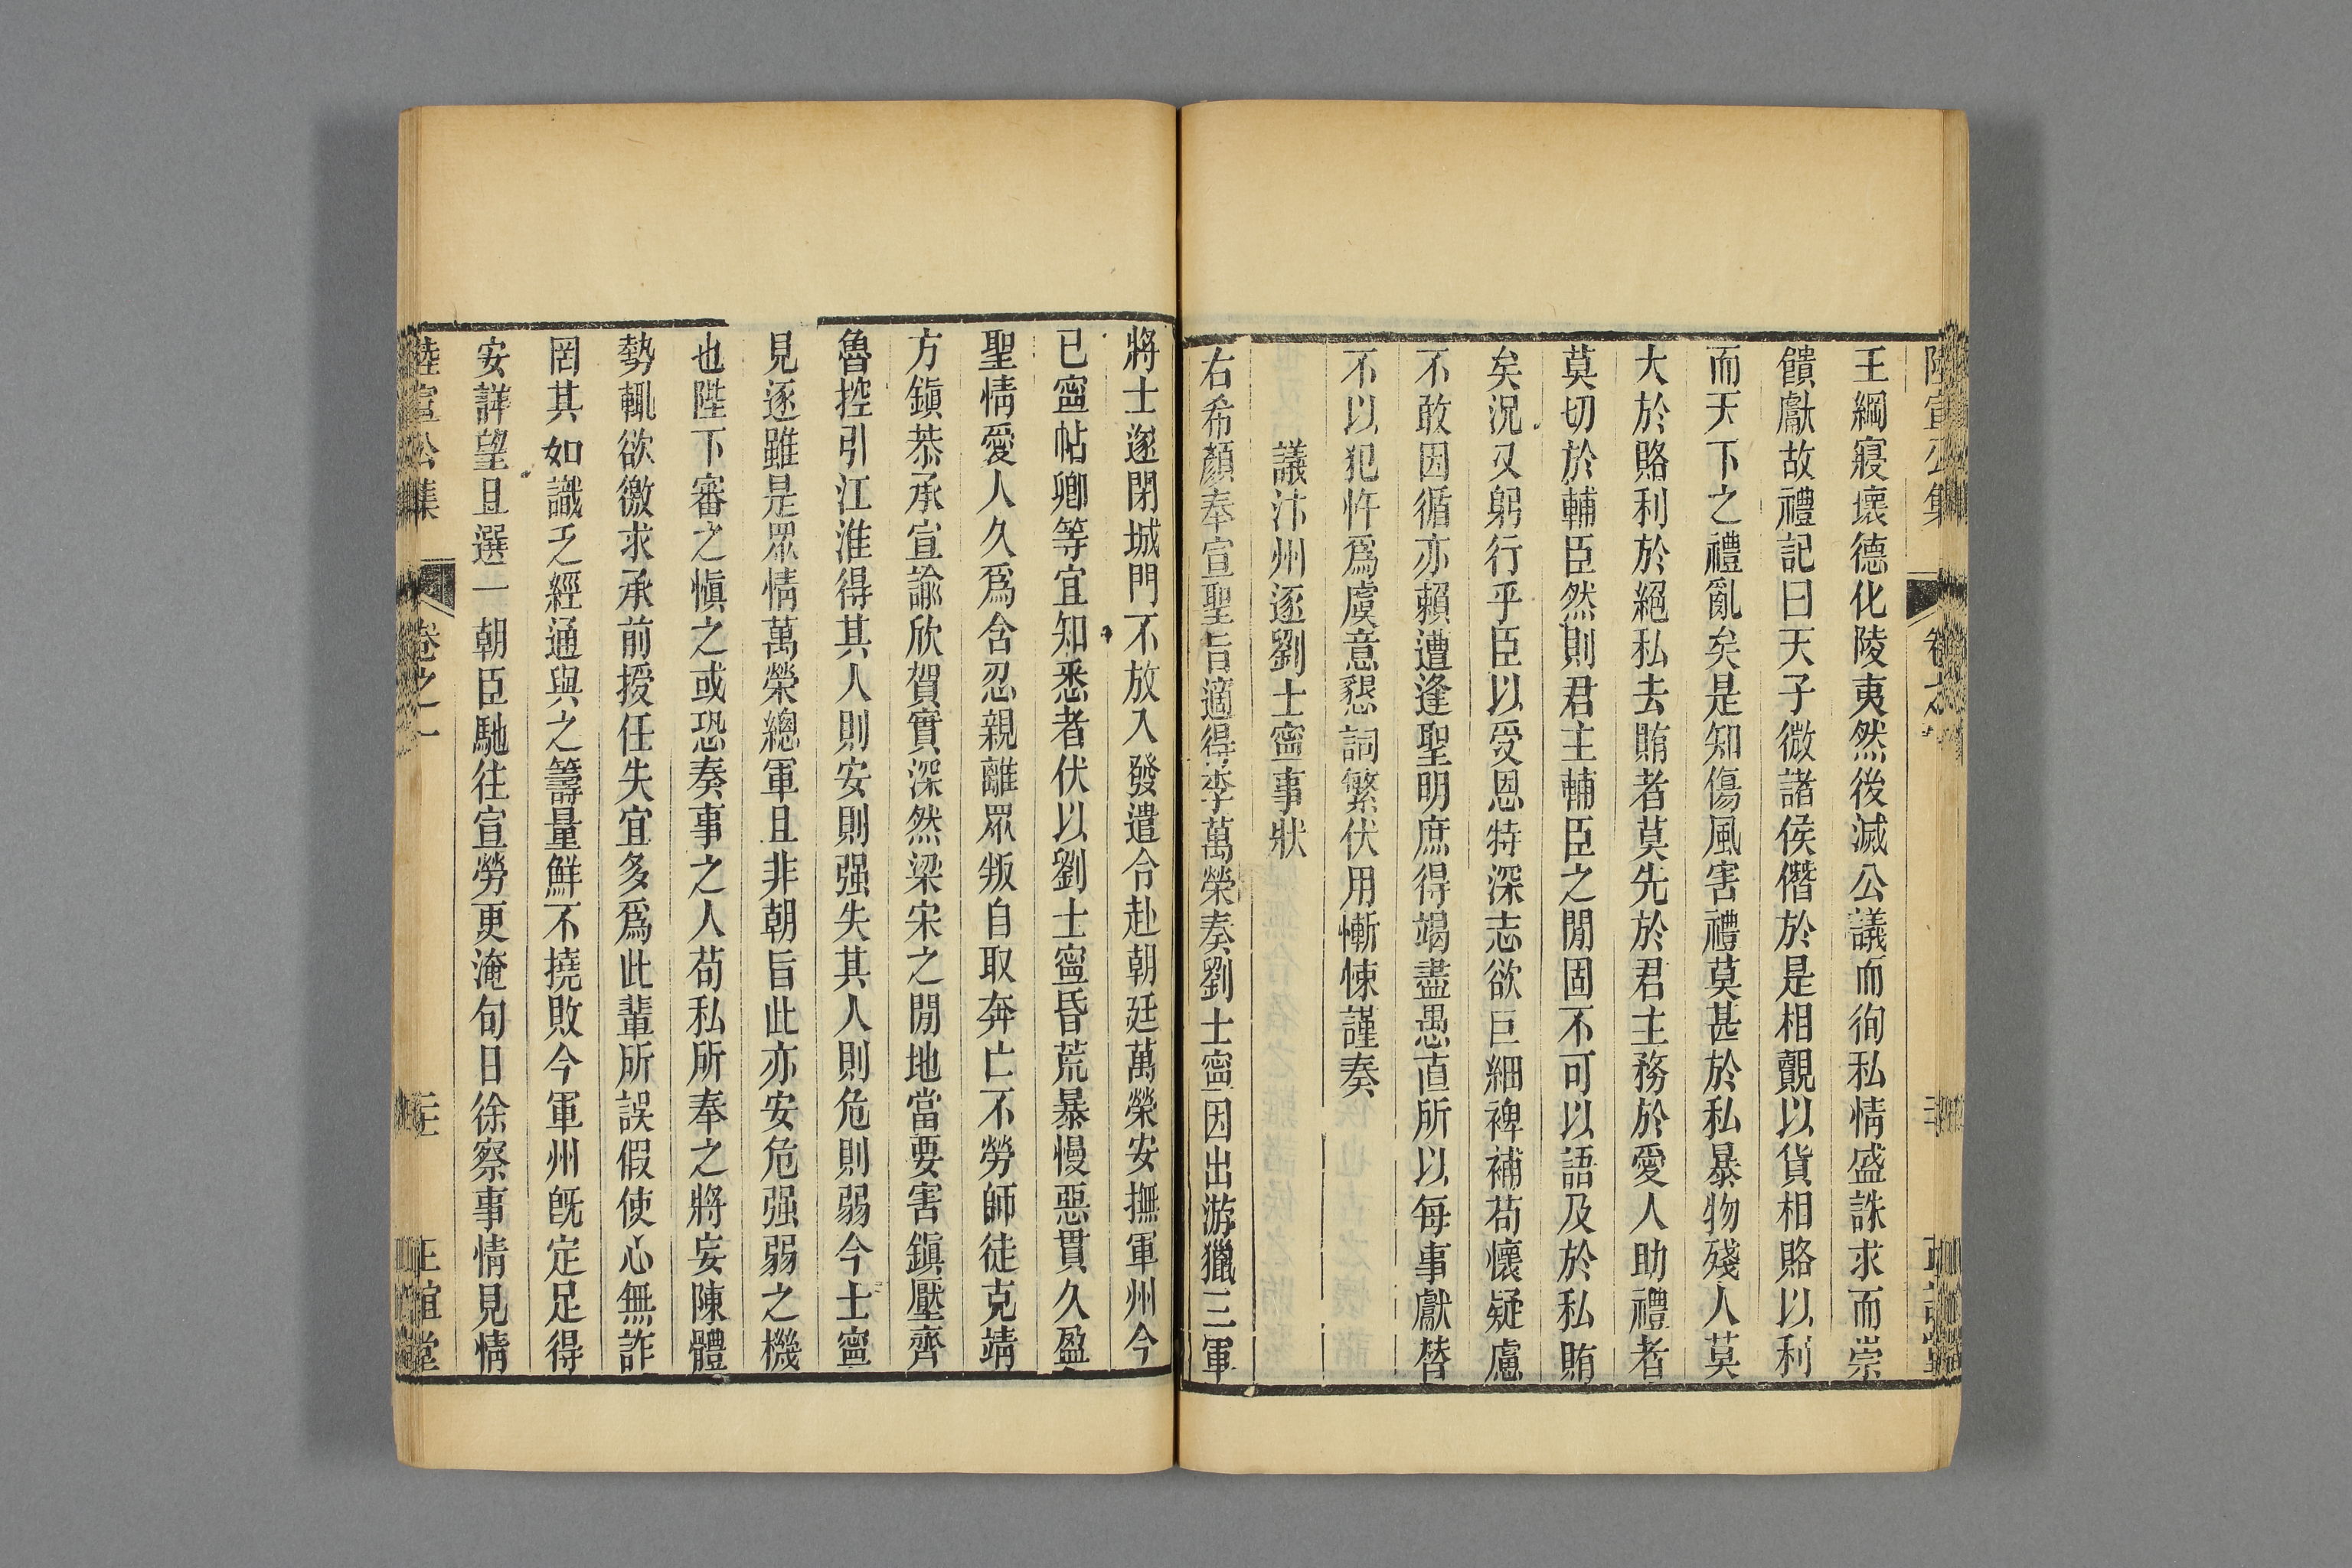 陸宣公集
王綱寢壞德化陵夷然後滅公議而徇私情盛誅求而崇
饋獻故禮記曰天子微諸侯僭於是相覿以貨相賂以利
而天下之禮亂矣是知傷風害禮莫甚於私暴物殘人莫
大於賂利於絕私去賄者莫先於君主務於愛人助禮者
莫切於輔臣然則君主輔臣之閒固不可以語及於私賄
矣況又躬行乎臣以受恩特深志欲巨細裨補苟懷疑慮
不敢因循亦賴遭逢聖明庶得竭盡愚直所以每事獻替
不以犯忤爲虞意懇詞繁伏用慚悚謹奏
議汴州逐劉士寧事狀
右希顏奉宣聖旨適得李萬榮奏劉士寧因出游獵三軍
將士遂閉城門不放入發遣令赴朝廷萬榮安撫軍州今
已寧帖卿等宜知悉者伏以劉士寧昏荒暴慢惡貫久盈
聖情愛人久爲含忍親離眾叛自取奔亡不勞師徒克靖
方鎮恭承宣諭欣賀實深然梁宋之閒地當要害鎮壓齊
魯控引江淮得其人則安則强失其人則危則弱今士寧
見逐雖是眾情萬榮總軍且非朝旨此亦安危强弱之機
也陛下審之愼之或恐奏事之人苟私所奉之將妄陳體
勢輒欲徼求承前授任失宜多爲此輩所誤假使心無詐
罔其如識乏經通與之籌量鮮不撓敗今軍州旣定足得
安詳望且選一朝臣馳往宣勞更淹旬日徐察事情見情
陸宣公集 卷之一 正誼堂